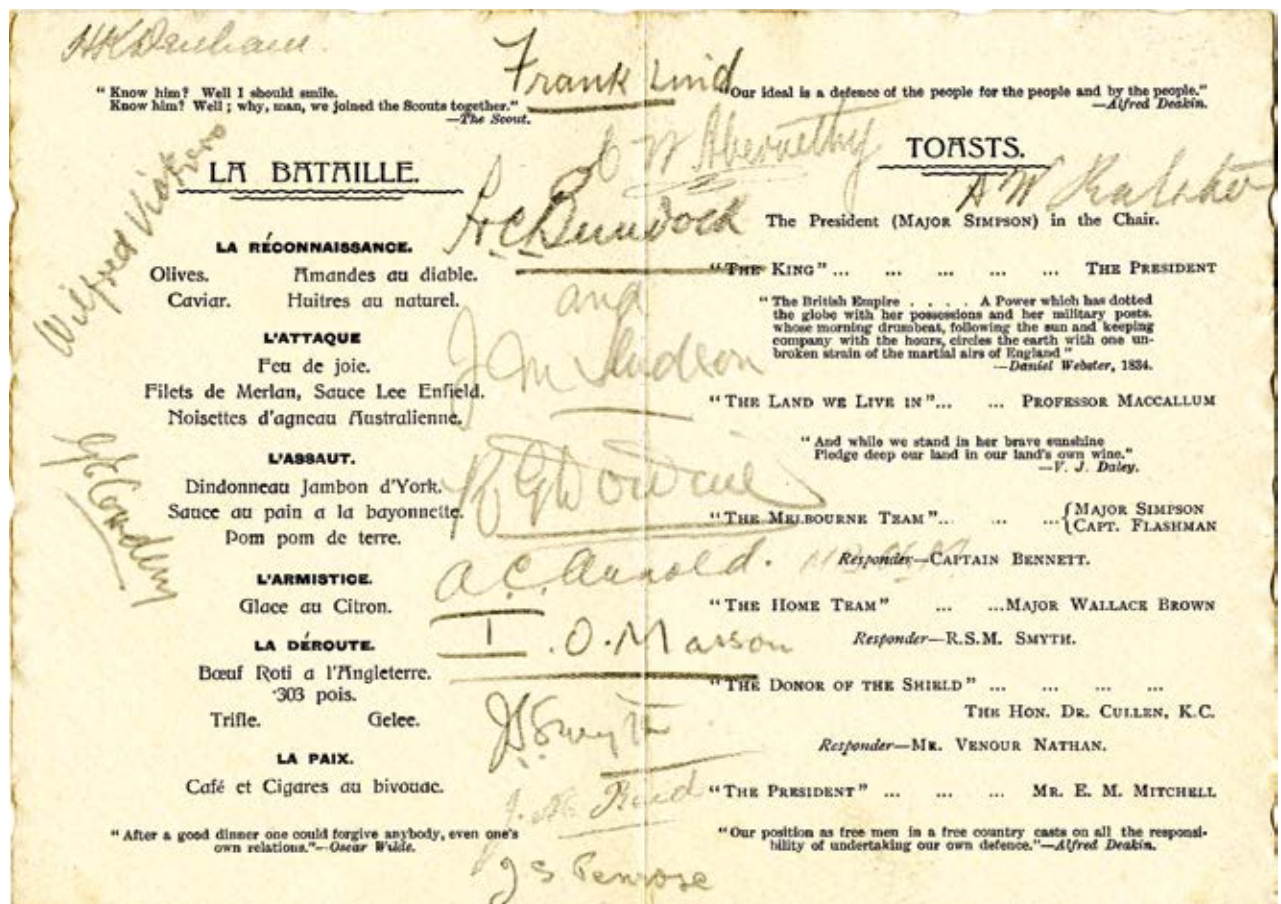 Frank
"Know him? Well I should smile.
Know him? Well; why, man, we joined the Scouts together."
—The Scout.
LA BATAILLE.
LA RÉCONNAISSANCE.
Olives. Amandes au diable.
Caviar. Huitres au naturel.
L'ATTAQUE
Feu de joie.
Filets de Merlan, Sauce Lee Enfield.
Noisettes d'agneau Australienne.
L'ASSAUT.
Dindonneau Jambon d'York.
Sauce au pain a la bayonnette.
Pom pom de terre.
L'ARMISTICE.
Glace au Citron.
LA DÉROUTE.
Bœuf Roti a l'Angleterre.
·303 pois.
Trifle. Gelee.
LA PAIX.
Café et Cigares au bivouac.
"After a good dinner one could forgive anybody, even one's
own relations."—Oscar Wilde.
Wilfred
C W Abernethy
A W
H.C. Burndock
and
J M Hudson
A.C. Arnold.
I.O. Masson
J S Smyth
J. M. Reid
J S Penrose
"Our ideal is a defence of the people for the people and by the people."
—Alfred Deakin.
TOASTS.
The President (MAJOR SIMPSON) in the Chair.
"THE KING" ... ... ... ... ... THE PRESIDENT
"The British Empire . . . . A Power which has dotted
the globe with her possessions and her military posts.
whose morning drumbeat, following the sun and keeping
company with the hours, circles the earth with one un-
broken strain of the martial airs of England"
—Daniel Webster, 1834.
"THE LAND WE LIVE IN"... ... PROFESSOR MACCALLUM
"And while we stand in her brave sunshine
Pledge deep our land in our land's own wine."
—V. J. Daley.
"THE MELBOURNE TEAM"... ... ... {MAJOR SIMPSON
{CAPT. FLASHMAN
Responder—CAPTAIN BENNETT.
"THE HOME TEAM" ... ...MAJOR WALLACE BROWN
Responder—R.S.M. SMYTH.
"THE DONOR OF THE SHIELD" ... ... ... ...
THE HON. DR. CULLEN, K.C.
Responder—MR. VENOUR NATHAN.
"THE PRESIDENT" ... ... ... MR. E. M. MITCHELL
"Our position as free men in a free country casts on all the responsi-
bility of undertaking our own defence."—Alfred Deakin.